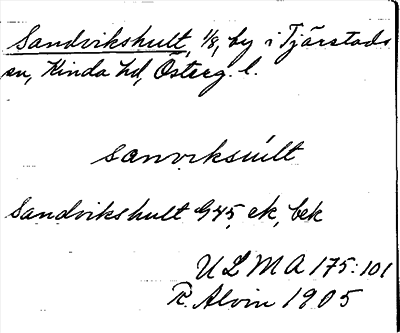 Sandvikshult, 1/8, by i Tjärstads
sn, Kinda hd, Österg. l.
sanviksúlt
Sandvikshult G45, ek, bek
ULMA 175:101
R. Alvin 1905